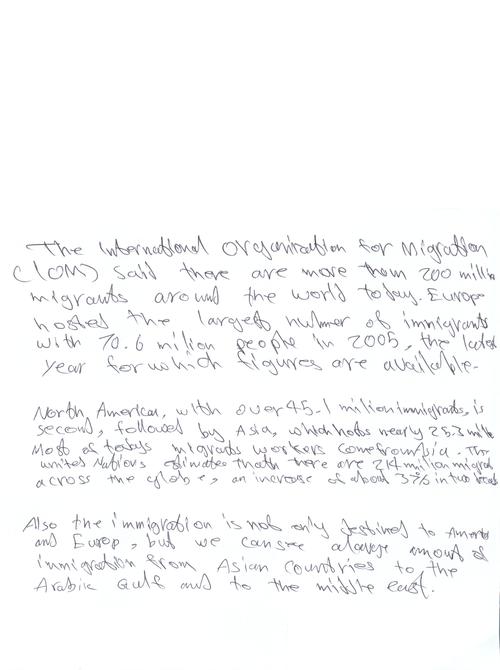 The International Organization for Migration
(IOM) said there are more than 200 million
migrants around the world today. Europe
hosted the largest numer of immigrants
with 70.6 milion people in 2005, the latest
year for which figures are available.
North, America, with over 45.1 milion immigrants, is
second, followed by Asia, which hosts nearly 25.3 milli
Most of todays migrants workers come from Asia. The
united Nations stimates that there are 214 million migrant
across the globe, an increase of about 37% in two
Also the immigration is not only destined to America
and Europ, but we can see a large amount of
immigration from Asian countries to the
Arabic Gulf and to the middle east.